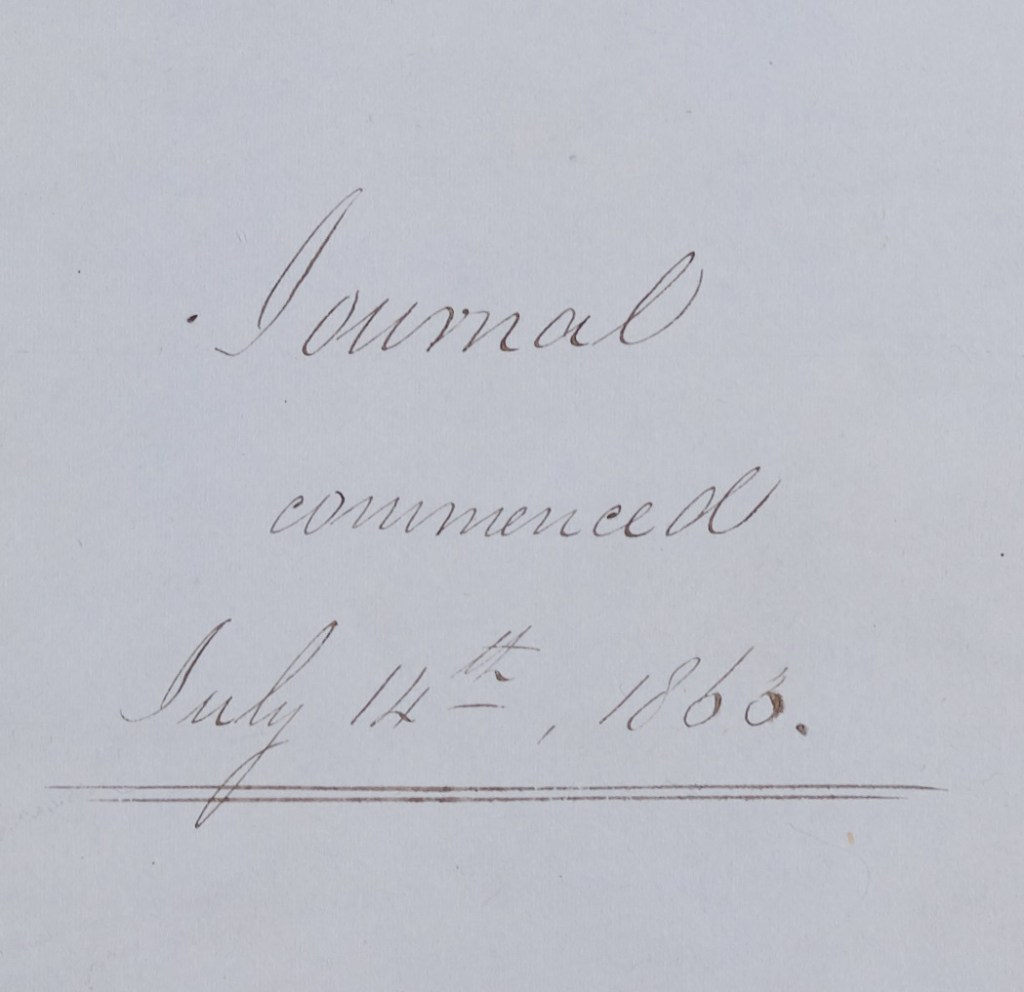 Journal
commenced
July 14th, 1863.